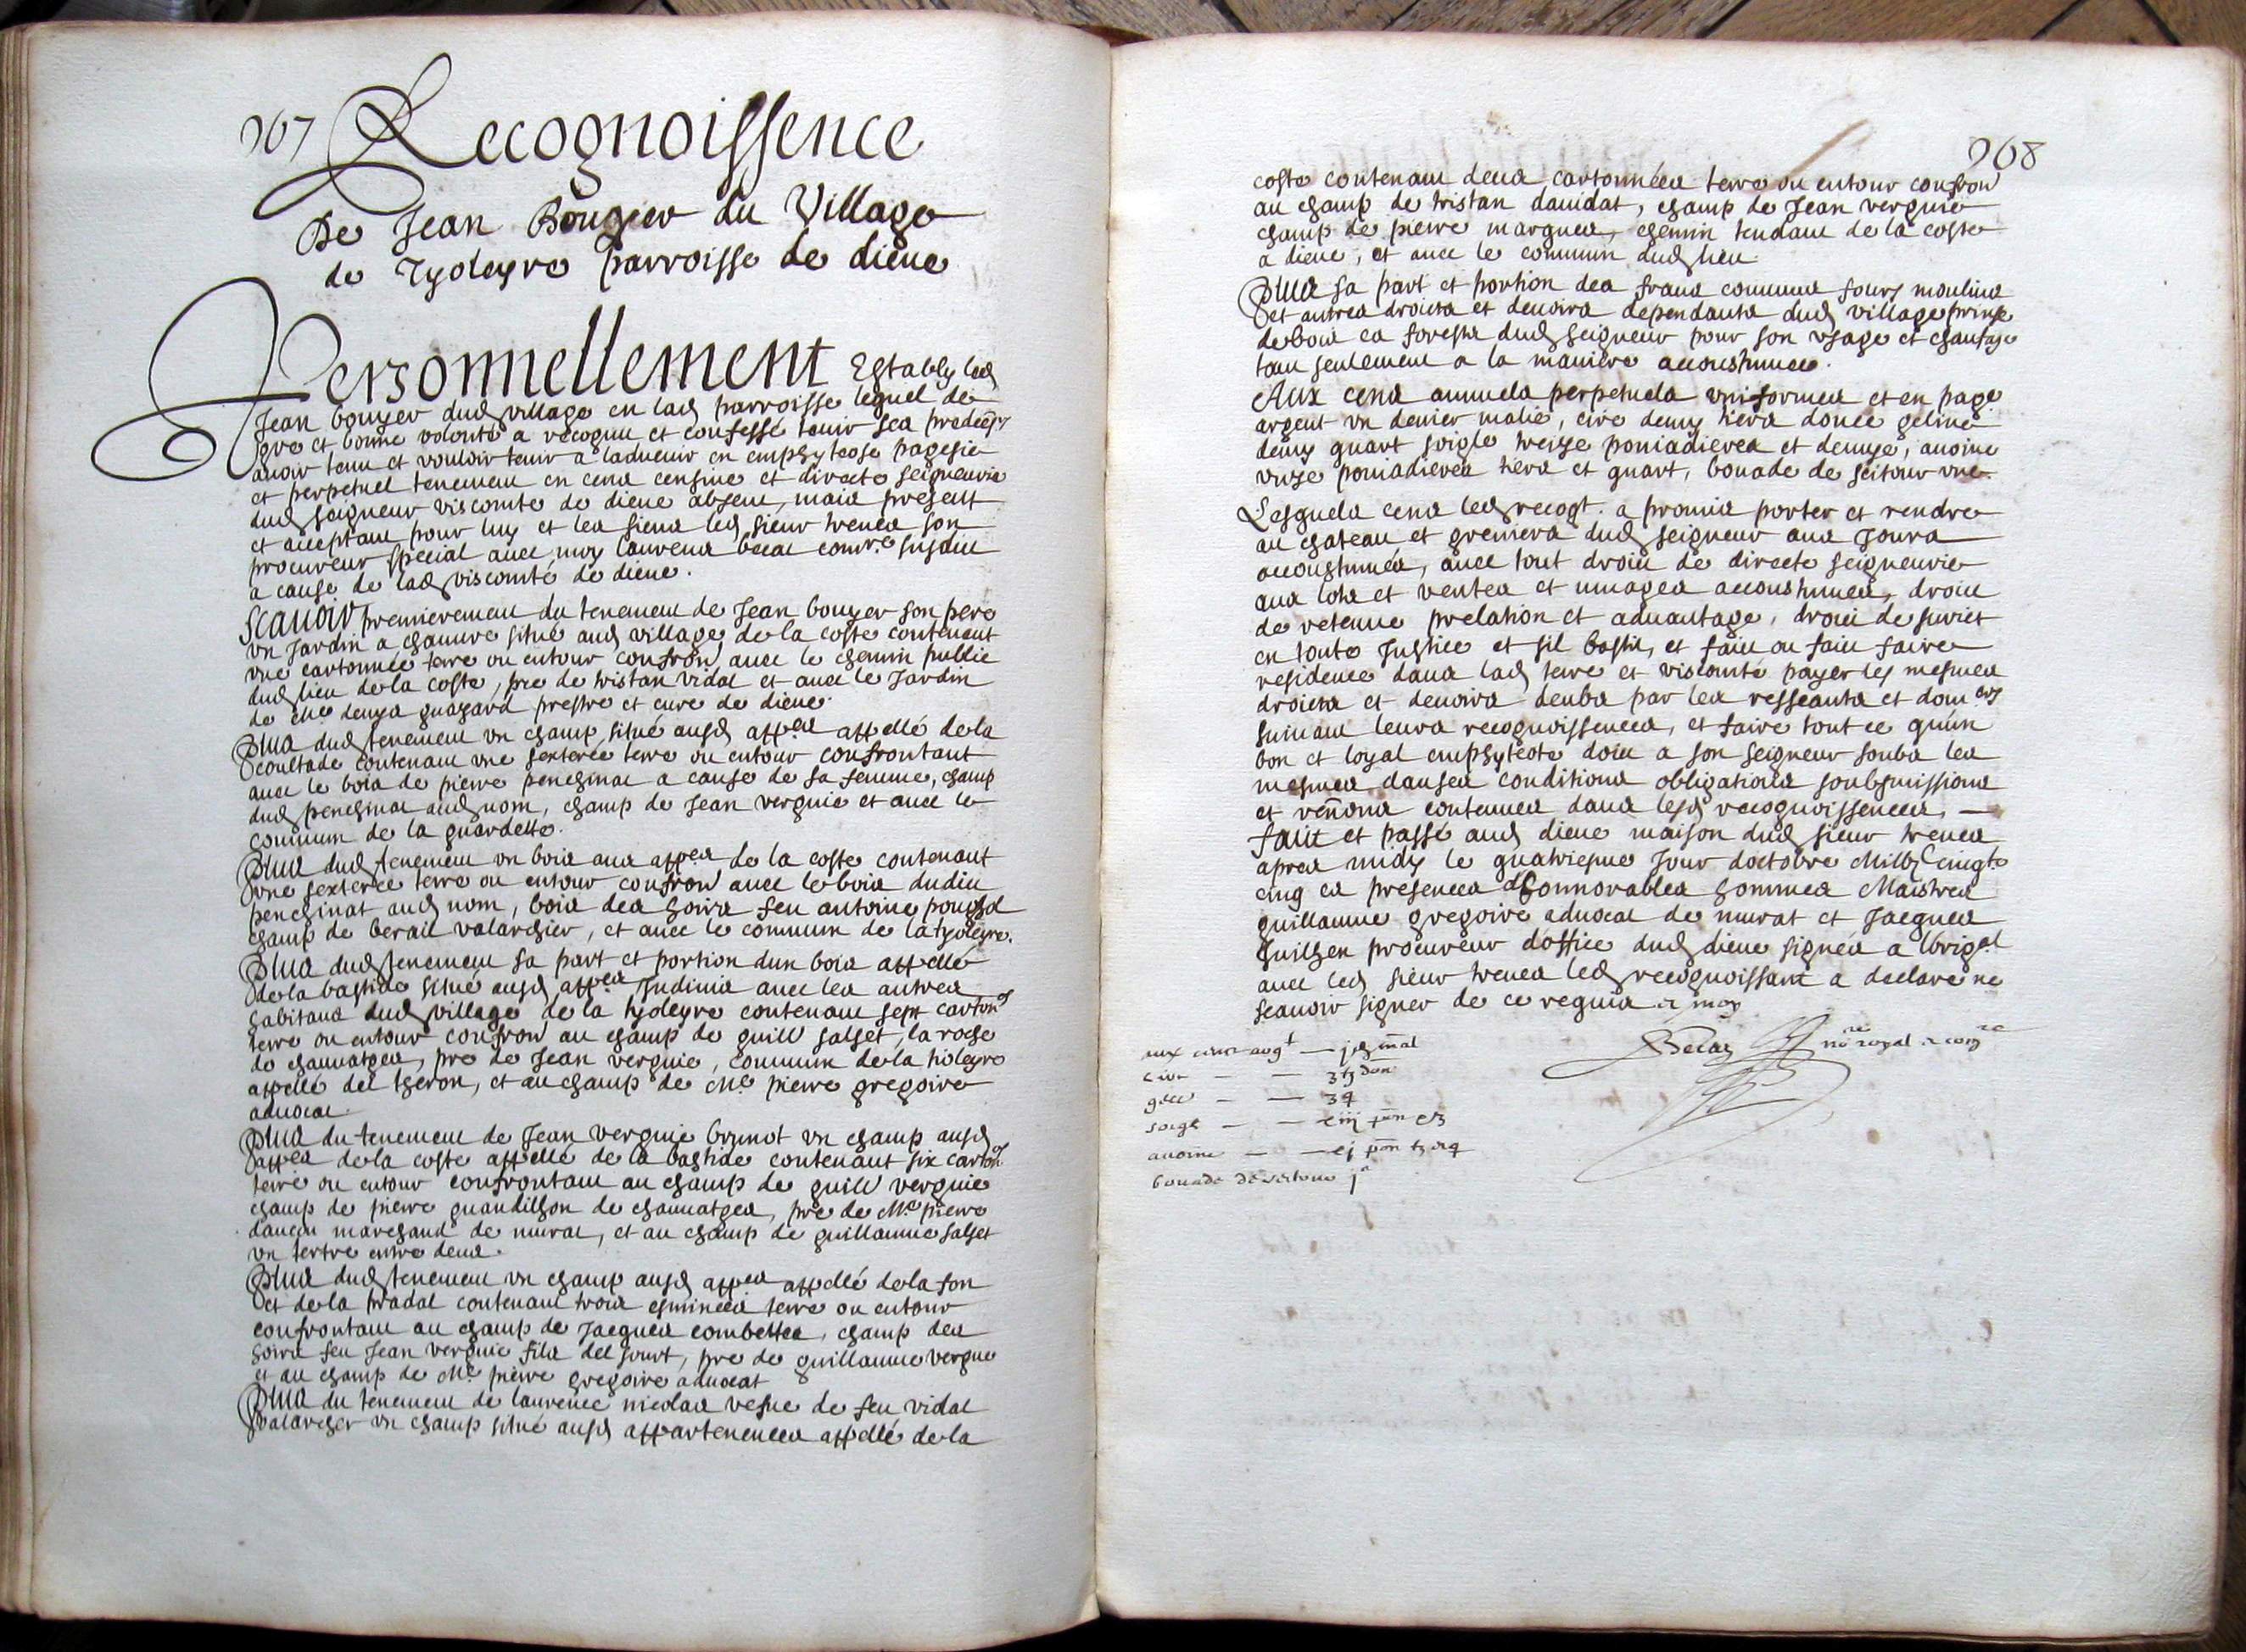 967 Recognoissence
De Jean Bouyer du Village
de Tyoleyre parroisse de diene
Personnellement Estably led
Jean bouyer dud village en lad parroisse lequel de
gre et bonne volonté a recognu et confessé tenir ses predecrs
avoir tenu et vouloir tenir a ladvenir en emphyteose pagesie
et perpetuel tenement en cens censive et directe seigneurie
dud seigneur viscomte de diene absent, mais present
et acceptant pour luy et les siens led sieur treves son
procureur special avec moy laurens becat comre susdit
a cause de lad viscomté de diene.
Scavoir premierement du tenement de Jean bouyer son pere
un Jardin a chanvre situé aud village de la coste contenent
une cartonnée terre ou entour confron avec le chemin public
dud lieu de la coste, pre de tristan vidal et avec le Jardin
de Me denys guazard prestre et cure de diene.
Plus dud tenement un champ situé ausd apples appellé de la
coultade contenant une sexterée terre ou entour confrontant
avec le bois de pierre penchinat a cause de sa femme, champ
dud penchinat aud nom, champ de Jean vergnie et avec le
commun de la guardette.
Plus dud tenement un bois aux appes de la coste contenant
une sexterée terre ou entour confron avec le bois dudit
penchinat aud nom, bois des hoirs feu antoine pouzol
champ de berail valarchier, et avec le commun de la tyoleyre.
Plus dud tenement sa part et portion dun bois appellé
de la bastide situé ausd appes Indivis avec les autres
habitans dud village de la tyoleyre contenant sept cartones
terre ou entour confron au champ de guill salset, la roche
de chanvatges, pre de Jean vergnie, commun de la tioleyre
appellé del theron, et au champ de Me pierre gregoire
advocat.
Plus du tenement de Jean vergnie brunot un champ ausd
appes de la coste appellé de la bastide contenant six carton
terre ou entour confrontant au champ de guill vergnie
champ de pierre guandilhon de chanvatges, pre de Me pierre
danson marchand de murat, et au champ de guillaume salset
un tertre entre deux.
Plus dud tenement un champ ausd appes appellé de la fon
et de la pradal contenant trois esminées terre ou entour
confrontant au champ de Jacques combettes, champ des
hoirs feu Jean vergnie fils del sourt, pre de guillaume vergne
et au champ de Me pierre gregoire advocat
Plus du tenement de laurence nicolas vefve de feu vidal
valarcher un champ situé ausd appartenences appellé de la
968
coste contenant deux cartonnées terre ou entour confron
au champ de tristan davidat, champ de Jean vergnie
champ de pierre margues, chemin tendant de la coste
a diene, et avec le commun dud lieu.
Plus sa part et portion des fraux communs fours moulins
et autres droicts et devoirs dependants dud village prinse
de bois es forests dud seigneur pour son usage et chaufaje
tan seulement a la maniere accoustumee.
Aux cens annuels perpetuels uniformes et en page
argent un denier malie, cire demy tiers donce geline
demy quart seigle treize poniadieres et demye, avoine
unze poniadieres tiers et quart, bouade de seitour une.
Lesquels cens led recogt. a promis porter et rendre
au chateau et greniers dud seigneur aux Jours
accoustumés, avec tout droit de directe seigneurie
aux lots et ventes et muages accoustumes, droit
de retenue prelation et advantage, droit de suriet
en toute Justice et sil bastit, et fait ou fait faire
residence dans lad terre et viscomté payer les mesmes
droicts et devoirs deubs par les resseants et domers
suivant leurs recognoissences, et faire tout ce quun
bon et loyal emphyteote doit a son seigneur soubs les
mesmes clauses conditions obligations soubsmissions
et renons contenues dans lesd recognoissences, —
Fait et passé aud diene maison dud sieur treves
apres midy le quatriesme Jour doctobre Mil vjc cinqte
cinq es presences dhonnorables hommes Maistres
guillaume gregoire advocat de murat et Jacques
Juilhen procureur doffice dud diene signés a lorigal
avec led sieur treves led recognoissant a declaré ne
scavoir signer de ce requis et moy
Becat no royal et comre
aux cens argt — jd mal
cire — —
gele — —
soigle — —
avoine — —
bouade de seitour j